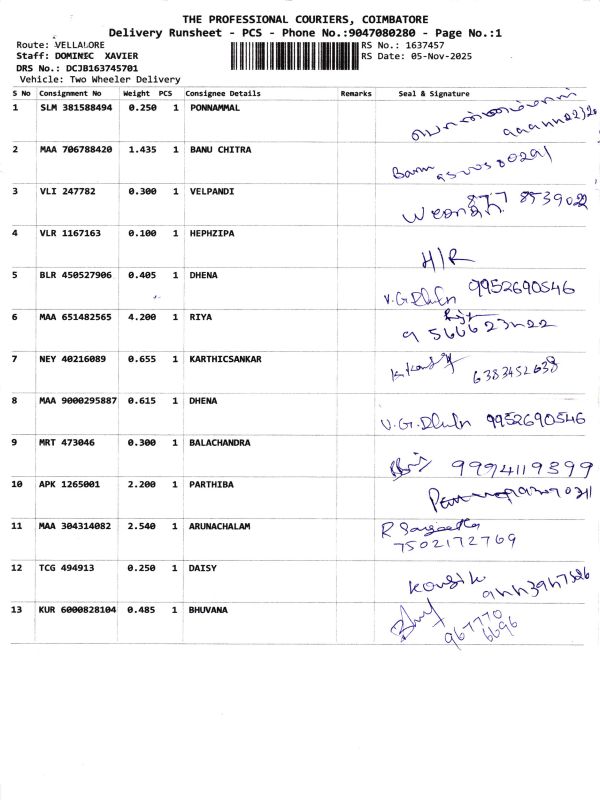 THE PROFESSIONAL COURIERS, COIMBATORE
Delivery Runsheet - PCS - Phone No.:9047080280 - Page No.:1
Route: VELLALORE
RS No.: 1637457
Staff: DOMINIC XAVIER
RS Date: 05-Nov-2025
DRS No.: DCJB163745701
Vehicle: Two Wheeler Delivery
S No Consignment No Weight PCS Consignee Details Remarks Seal & Signature
1 SLM 381588494 0.250 1 PONNAMMAL
2 MAA 706788420 1.435 1 BANU CHITRA
3 VLI 247782 0.300 1 VELPANDI
877 8539022
4 VLR 1167163 0.100 1 HEPHZIPA
H/R
5 BLR 450527906 0.405 1 DHENA
V.G. 9952690546
6 MAA 651482565 4.200 1 RIYA
7 NEY 40216089 0.655 1 KARTHICSANKAR
6383452638
8 MAA 9000295887 0.615 1 DHENA
V.G. 9952690546
9 MRT 473046 0.300 1 BALACHANDRA
9994119399
10 APK 1265001 2.200 1 PARTHIBA
11 MAA 304314082 2.540 1 ARUNACHALAM
R
7502172769
12 TCG 494913 0.250 1 DAISY
13 KUR 6000828104 0.485 1 BHUVANA
967770
6696